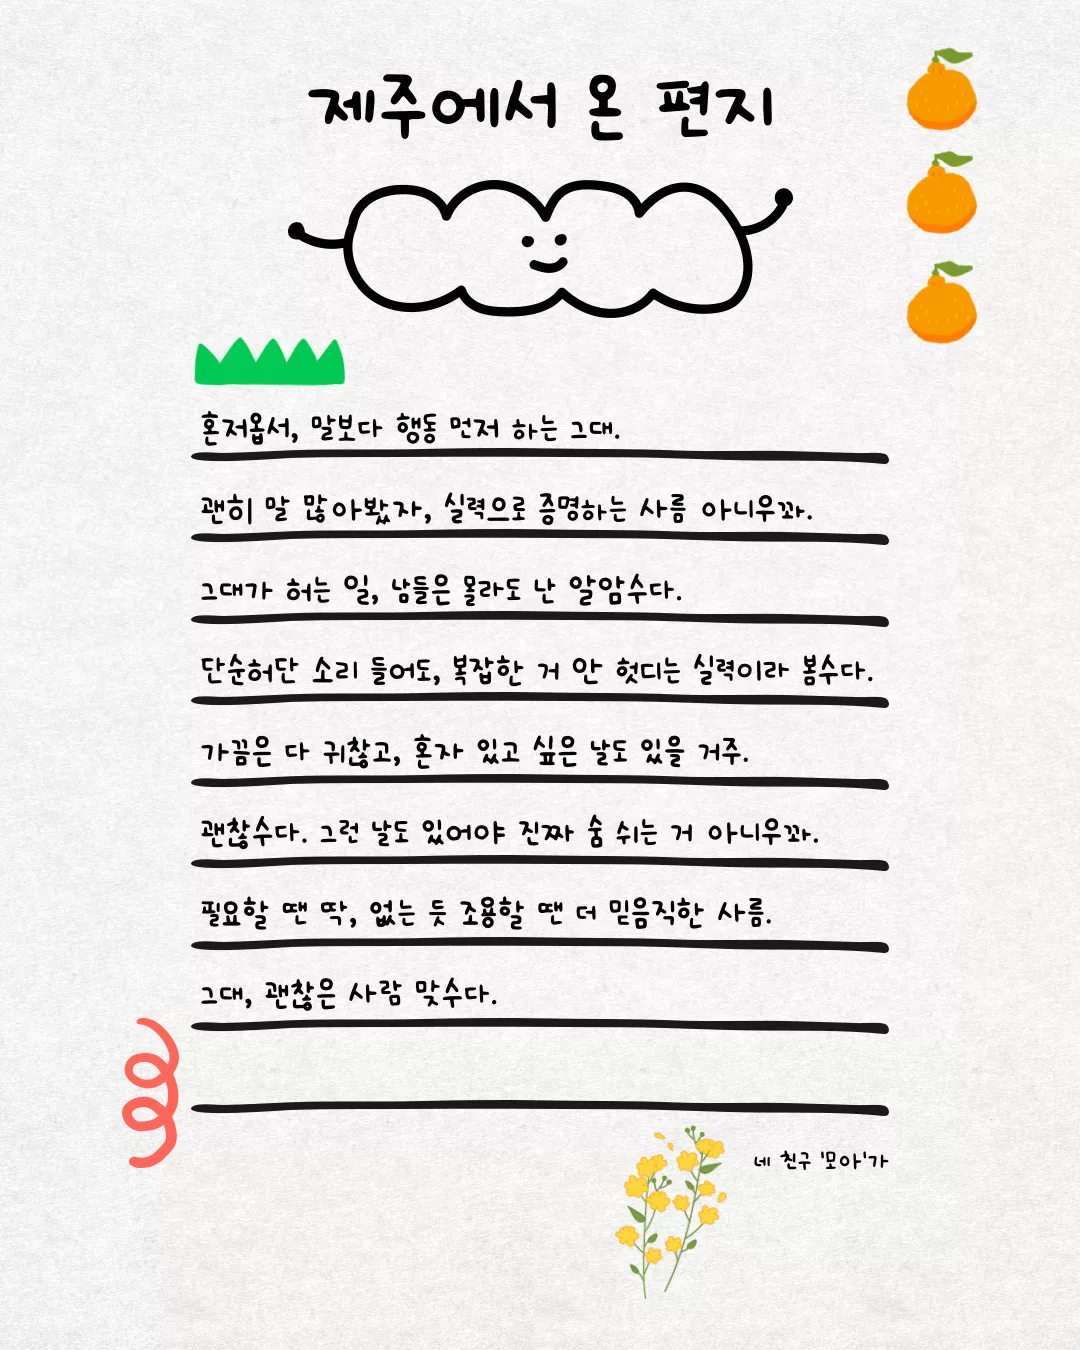 제주에서 온 편지
혼저옵서, 말보다 행동 먼저 하는 그대.
괜히 말 많아봤자, 실력으로 증명하는 사름 아니우꽈.
그대가 허는 일, 남들은 몰라도 난 알암수다.
단순허단 소리 들어도, 복잡한 거 안 헛디는 실력이라 봄수다.
가끔은 다 귀찮고, 혼자 있고 싶은 날도 있을 거주.
괜찮수다. 그런 날도 있어야 진짜 숨 쉬는 거 아니우꽈.
필요할 땐 딱, 없는 듯 조용할 땐 더 믿음직한 사름.
그대, 괜찮은 사람 맞수다.
네 친구 '모아'가